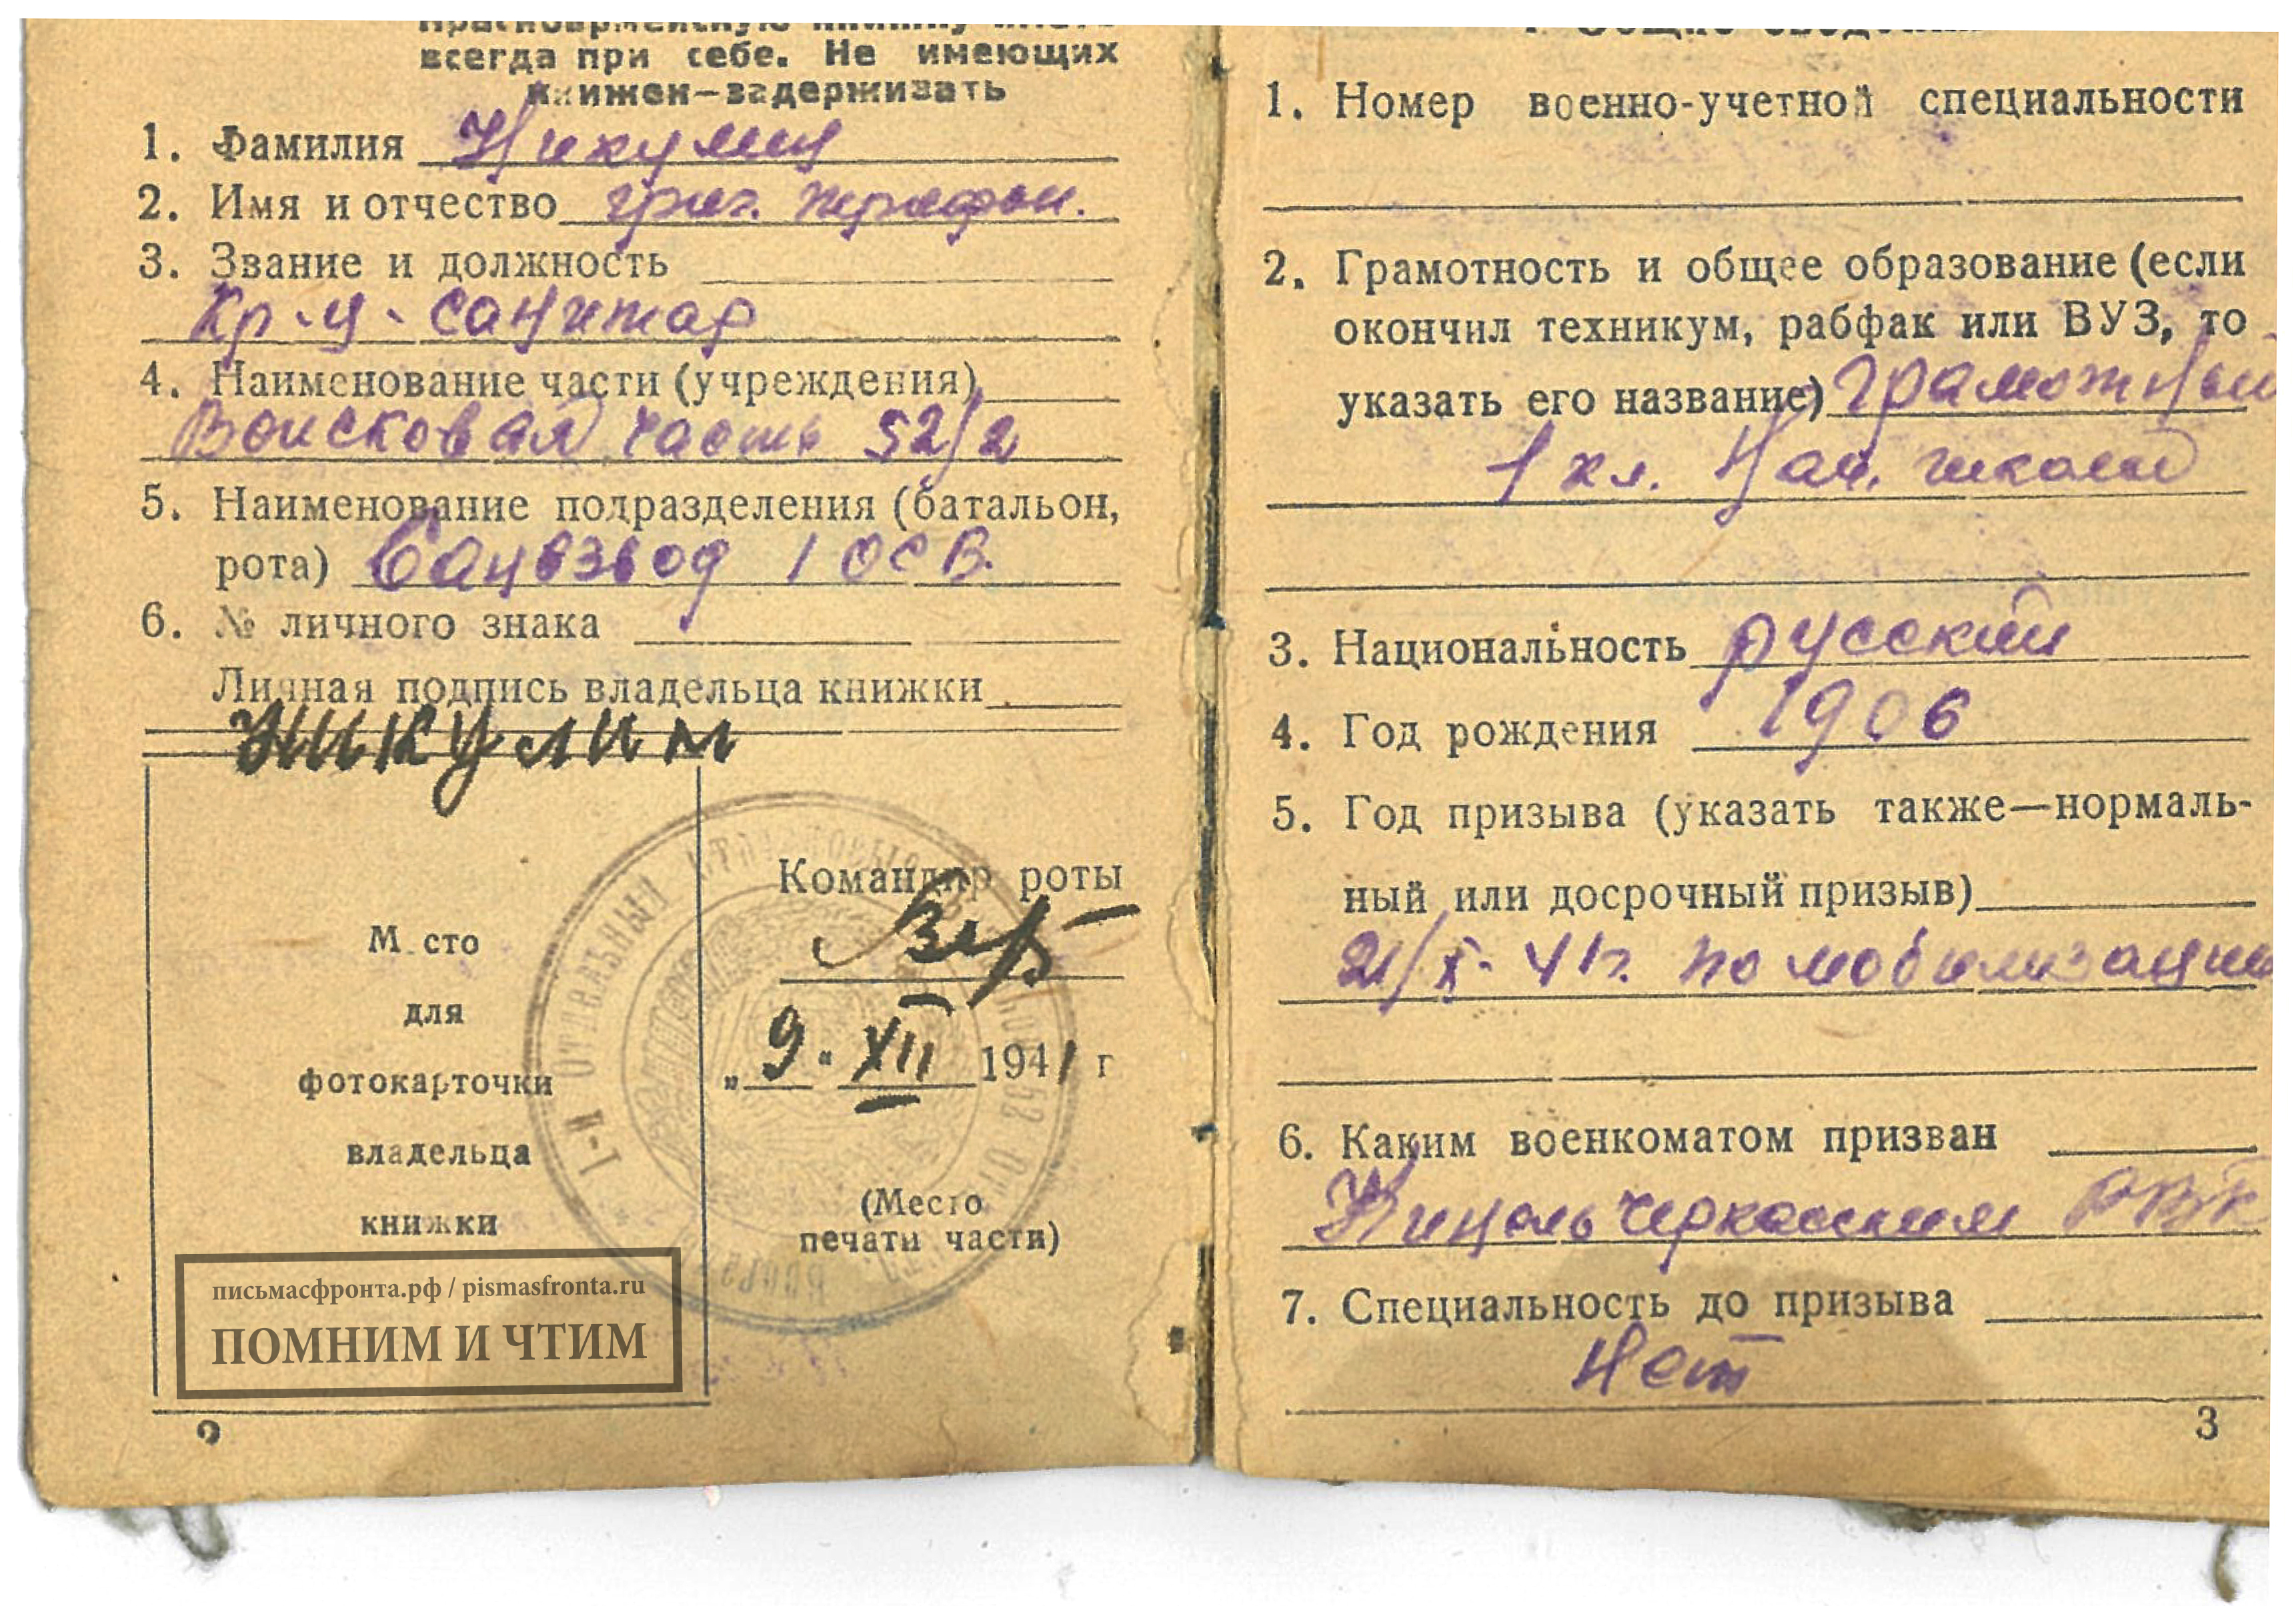 Красноармейскую книжку иметь
всегда при себе. Не имеющих
книжек—задерживать
1. Фамилия Никулин
2. Имя и отчество Григ. Трифон.
3. Звание и должность
Кр-ц. Санитар
4. Наименование части (учреждения)
Воисковая часть 52/2
5. Наименование подразделения (батальон,
рота) Санвзвод 1 ОСБ.
6. № личного знака
Личная подпись владельца книжки
Никулин
Место
для
фотокарточки
владельца
книжки
Командир роты
"9" XII 1941 г
(Место
печати части)
1-й Отдельный
письмасфронта.рф / pismasfronta.ru
ПОМНИМ И ЧТИМ
2
1. Общие сведения
1. Номер военно-учетной специальности
2. Грамотность и общее образование (если
окончил техникум, рабфак или ВУЗ, то
указать его название) Грамотный
1 кл. Нач. школы
3. Национальность русский
4. Год рождения 1906
5. Год призыва (указать также—нормаль-
ный или досрочный призыв)
21/X-41г. по мобилизации
6. Каким военкоматом призван
Кинель Черкасским РВК
7. Специальность до призыва
Нет
3